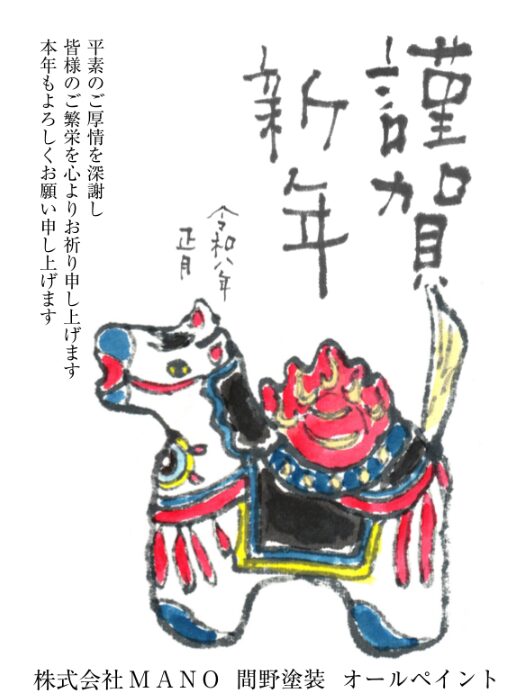 謹賀
新年
令和八年
正月
平素のご厚情を深謝し
皆様のご繁栄を心よりお祈り申し上げます
本年もよろしくお願い申し上げます
株式会社ＭＡＮＯ 間野塗装 オールペイント